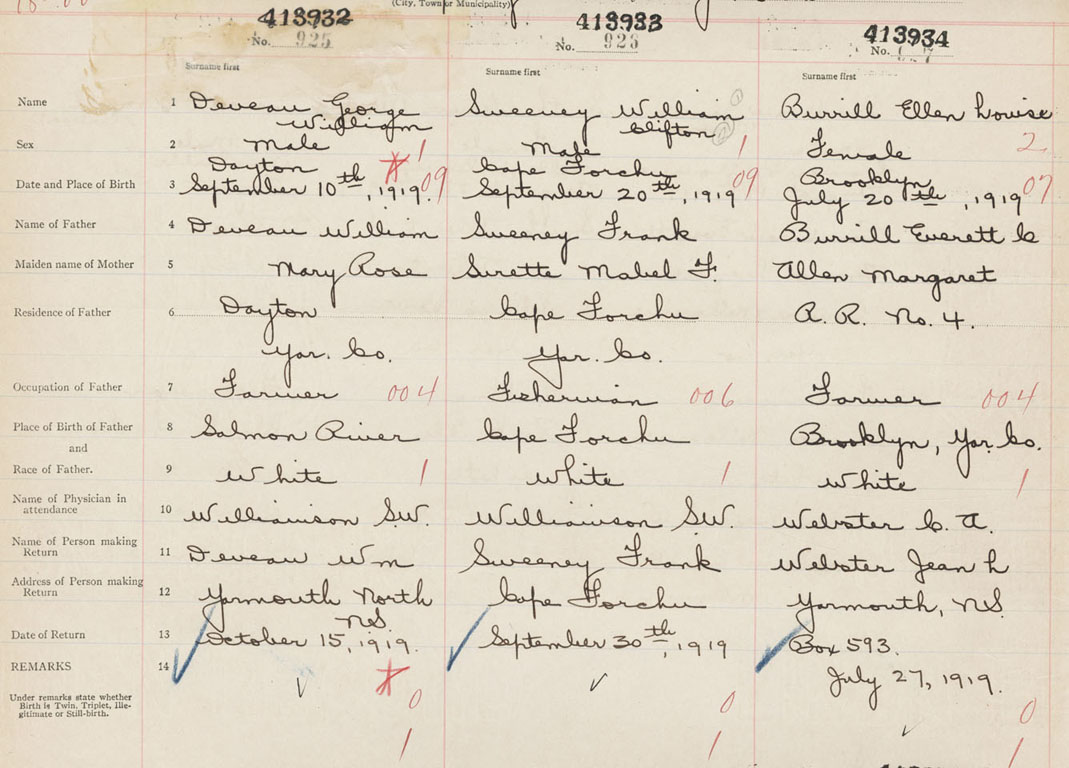 (City, Town or Municipality)
413932 413933 413934
No. 925 No. 926 No.
Surname first Surname first Surname first
Name 1 Deveau George William Sweeney William Clifton Burrill Ellen Louise
Sex 2 Male 1 Male 1 Female 2
Dayton Cape Forchu Brooklyn
Date and Place of Birth 3 September 10th, 1919 09 September 20th, 1919 09 July 20th, 1919 07
Name of Father 4 Deveau William Sweeney Frank Burrill Everett C
Maiden name of Mother 5 Mary Rose Surette Mabel F. Allen Margaret
Residence of Father 6 Dayton Cape Forchu R. R. No. 4.
Yar. Co. Yar. Co.
Occupation of Father 7 Farmer 004 Fisherman 006 Farmer 004
Place of Birth of Father 8 Salmon River Cape Forchu Brooklyn, Yar. Co.
and
Race of Father. 9 White 1 White 1 White 1
Name of Physician in
attendance 10 Williamson S.W. Williamson S.W. Webster C. A.
Name of Person making
Return 11 Deveau Wm Sweeney Frank Webster Jean L
Address of Person making
Return 12 Yarmouth North Cape Forchu Yarmouth, NS.
NS
Date of Return 13 October 15, 1919. September 30th, 1919 Box 593.
REMARKS 14 July 27, 1919.
Under remarks state whether
Birth is Twin, Triplet, Ille-
gitimate or Still-birth.
0 0 0
1 1 1